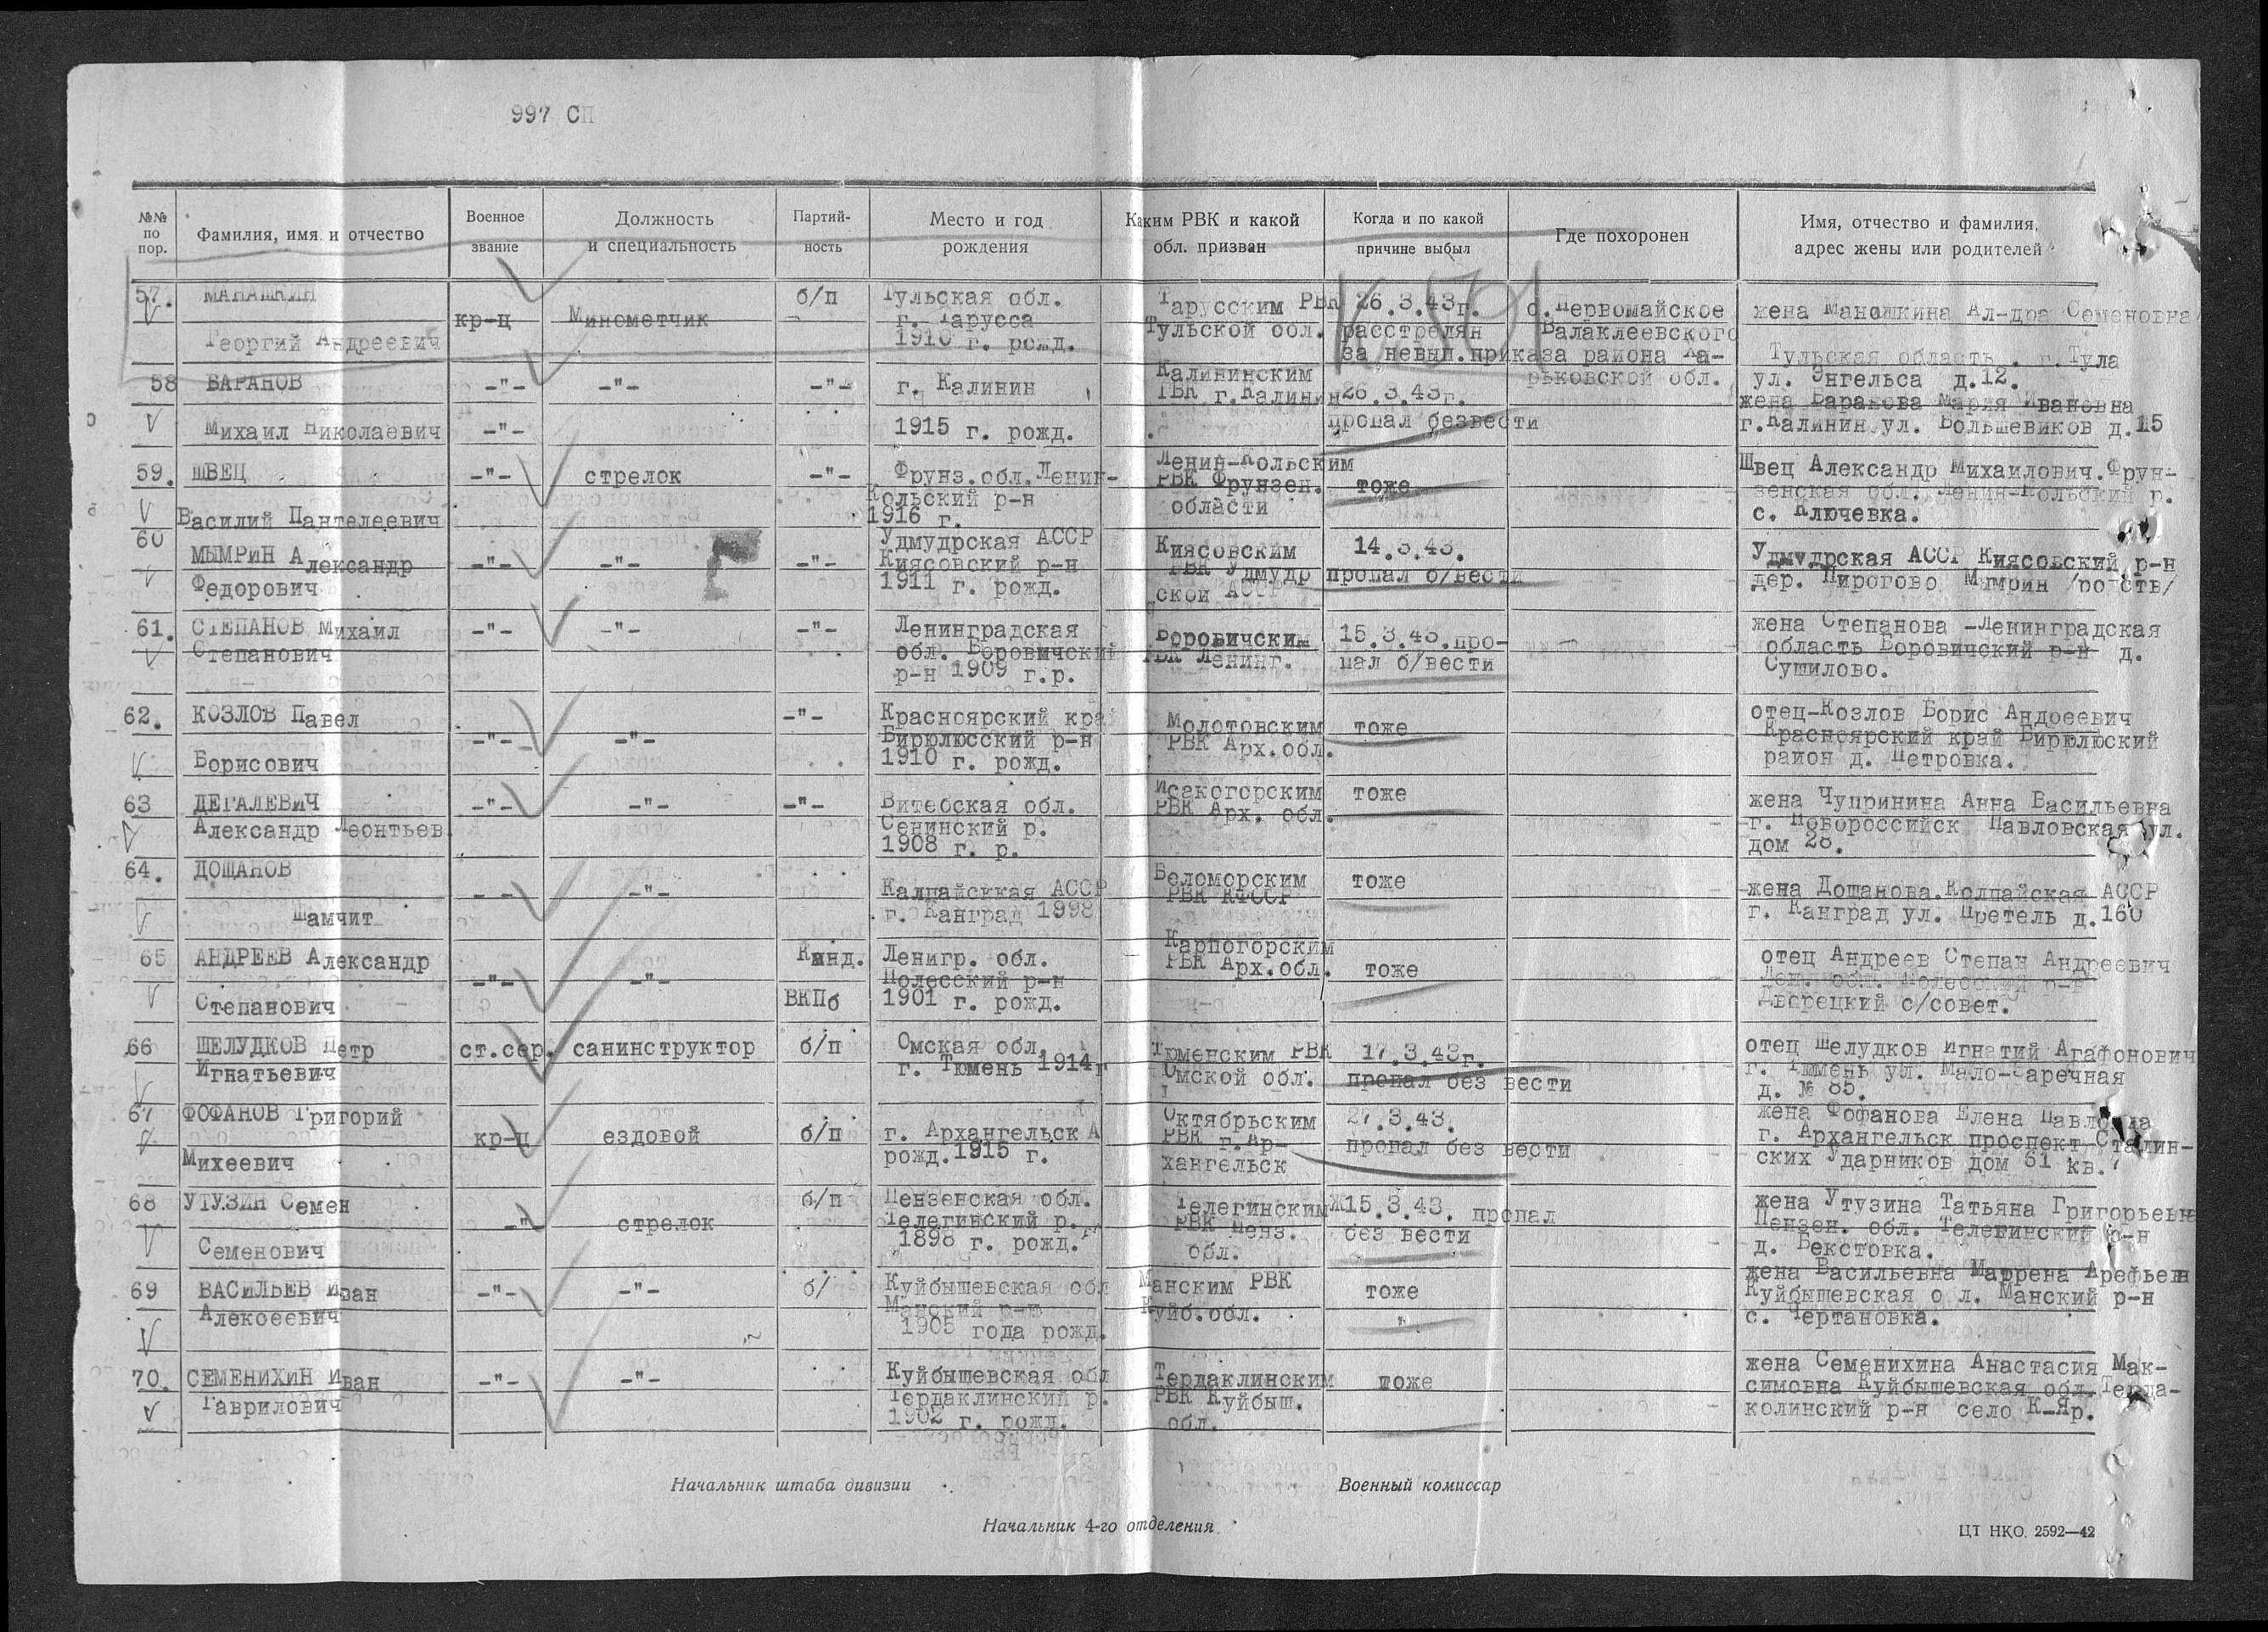 997 СП
№№ по пор.
Фамилия, имя и отчество
Военное звание
Должность и специальность
Партий-ность
Место и год рождения
Каким РВК и какой обл. призван
Когда и по какой причине выбыл
Где похоронен
Имя, отчество и фамилия, адрес жены или родителей
57. МАНАШКИН б/п Тульская обл. Тарусским РВК 26.3.43г. с.Первомайское жена Маношкина Ал-дра Семеновна
кр-ц Минометчик г. Тарусса Тульской обл. расстрелян Балаклеевского
Георгий Андреевич 1910 г. рожд. за невып.приказа района Ха- Тульская область . г. Тула
58 БАРАНОВ -"- -"- -"- г. Калинин Калининским рьковской обл. ул. Энгельса д.12.
РВК г.Калинин 26.3.43г. жена Баранова Мария Ивановна
Михаил Николаевич -"- 1915 г. рожд. пропал безвести г.Калинин ул. Большевиков д.15
59. ШВЕЦ -"- стрелок -"- Фрунз.обл.Ленин- Ленин-Кольским Швец Александр Михаилович.Фрун-
Кольский р-н РВК Фрунзен. тоже зенская обл. Ленин-Кольский р.
Василий Пантелеевич 1916 г. области с. Ключевка.
60 Удмудрская АССР
МЫМРИН Александр -"- -"- -"- Киясовский р-н Киясовским 14.3.43. Удмудрская АССР Киясовский р-н
Федорович 1911 г. рожд. РВК Удмудр пропал б/вести дер. Пирогово Мымрин
ской АССР
61. СТЕПАНОВ Михаил -"- -"- -"- Ленинградская Боровичским 15.3.43.про- жена Степанова -Ленинградская
Степанович обл. Боровичский РВК Ленинг. пал б/вести область Боровичский р-н д.
р-н 1909 г.р. Сушилово.
62. КОЗЛОВ Павел -"- Красноярский край Молотовским тоже отец-Козлов Борис Андреевич
-"- -"- Бирюлюсский р-н РВК Арх.обл. Красноярский край Бирюлюский
Борисович 1910 г. рожд. район д. Петровка.
63 ДЕГАЛЕВИЧ -"- -"- -"- Витебская обл. Исакогорским тоже жена Чупринина Анна Васильевна
Александр Леонтьев. Сенинский р. РВК Арх. обл. г. Новороссийск Павловская ул.
1908 г. р. дом 28.
64. ДОШАНОВ Беломорским тоже
- - -"- Калпайсккая АССР РВК КФССР жена Дошанова.Колпайская АССР
Шамчит г. Канград 1998 г. Канград ул. Претель д.160
65 АНДРЕЕВ Александр Кинд. Ленигр. обл. Карпогорским отец Андреев Степан Андреевич
-"- -"- Полесский р-н РВК Арх.обл. тоже Лен. обл. Полесский р-н
Степанович ВКПб 1901 г. рожд. Дворецкий с/совет.
66 ШЕЛУДКОВ Петр ст.сер. санинструктор б/п Омская обл. Тюменским РВК 17.3.43г. отец Шелудков Игнатий Агафонович
Игнатьевич г. Тюмень 1914г Омской обл. пропал без вести г. Тюмень ул. Мало-Заречная
д. № 85.
67 ФОФАНОВ Григорий Октябрьским 27.3.43. жена Фофанова Елена Павловна
кр-ц ездовой б/п г. Архангельск РВК г.Ар- пропал без вести г. Архангельск проспект Сталин-
Михеевич рожд.1915 г. хангельск ских Ударников дом 51 кв.7
68 УТУЗИН Семен б/п Пензенская обл. Телегинским 15.3.43. пропал жена Утузина Татьяна Григорьевн
-"- стрелок Телегинский р. РВК Пенз. без вести Пензен. обл. Телегинский р-н
Семенович 1898 г. рожд. обл. д. Бекстовка.
69 ВАСИЛЬЕВ Иван -"- -"- б/ Куйбышевская обл Манским РВК тоже жена Васильевна Маврена Арефьевн
Алекоеевич Манский р-н Куйб.обл. Куйбышевская о л. Манский р-н
1905 года рожд. с. Чертановка.
70. СЕМЕНИХИН Иван -"- -"- Куйбышевская обл Тердаклинским тоже жена Семенихина Анастасия Мак-
Гаврилович Тердаклинский р. РВК Куйбыш. симовна Куйбышевская обл.Терда-
1902 г. рожд. обл. колинский р-н село К-Яр.
Начальник штаба дивизии
Военный комиссар
Начальник 4-го отделения
ЦТ НКО. 2592—42